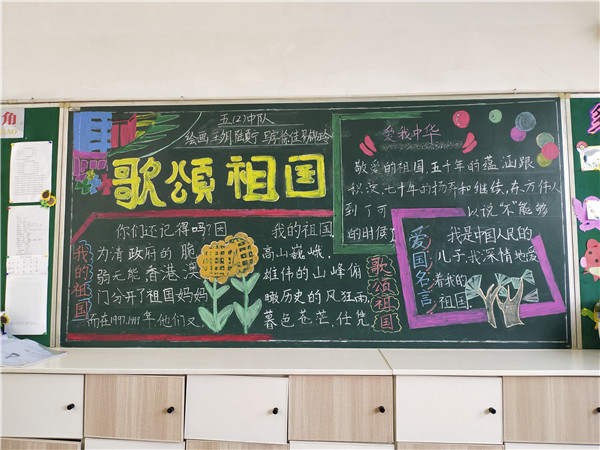 五(2)中队
歌颂祖国
你们还记得吗?因
为清政府的脆
弱无能,香港、澳
门分开了祖国妈妈
而在1997.1999年他们又
我的祖国
我的祖国
高山巍峨
雄伟的山峰俯
瞰历史的风狂雨
暮色苍茫,任凭
歌颂祖国
爱我中华
敬爱的祖国,五十年的蕴涵跟
积淀,七十年的扬弃和继续,东方伟人
到了可以说“不”能够
的时候
爱国名言
我是中国人民的
儿子,我深情地爱
着我的
祖国
角